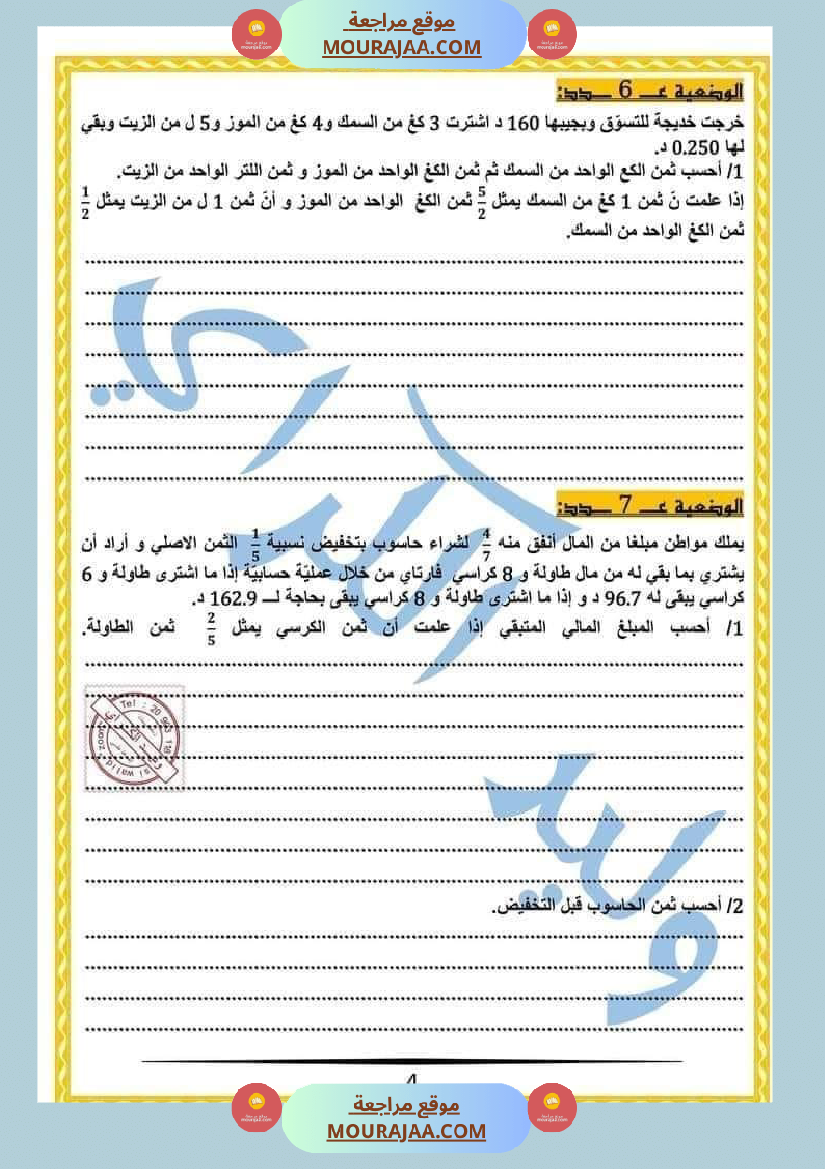 موقع مراجعة
MOURAJAA.COM
الوضعية عـــ 6 ـــدد:
خرجت خديجة للتسوّق وبجيبها 160 د اشترت 3 كغ من السمك و4 كغ من الموز و5 ل من الزيت وبقي
لها 0.250 د.
1/ أحسب ثمن الكغ الواحد من السمك ثم ثمن الكغ الواحد من الموز و ثمن اللتر الواحد من الزيت.
إذا علمت نّ ثمن 1 كغ من السمك يمثل 5/2 ثمن الكغ الواحد من الموز و أنّ ثمن 1 ل من الزيت يمثل 1/2
ثمن الكغ الواحد من السمك.
الوضعية عـــ 7 ـــدد:
يملك مواطن مبلغا من المال أنفق منه 4/7 لشراء حاسوب بتخفيض نسبية 1/5 الثمن الاصلي و أراد أن
يشتري بما بقي له من مال طاولة و 8 كراسي فارتاي من خلال عمليّة حسابيّة إذا ما اشترى طاولة و 6
كراسي يبقى له 96.7 د و إذا ما اشترى طاولة و 8 كراسي يبقى بحاجة لـــ 162.9 د.
1/ أحسب المبلغ المالي المتبقي إذا علمت أن ثمن الكرسي يمثل 2/5 ثمن الطاولة.
2/ أحسب ثمن الحاسوب قبل التخفيض.
4
موقع مراجعة
MOURAJAA.COM